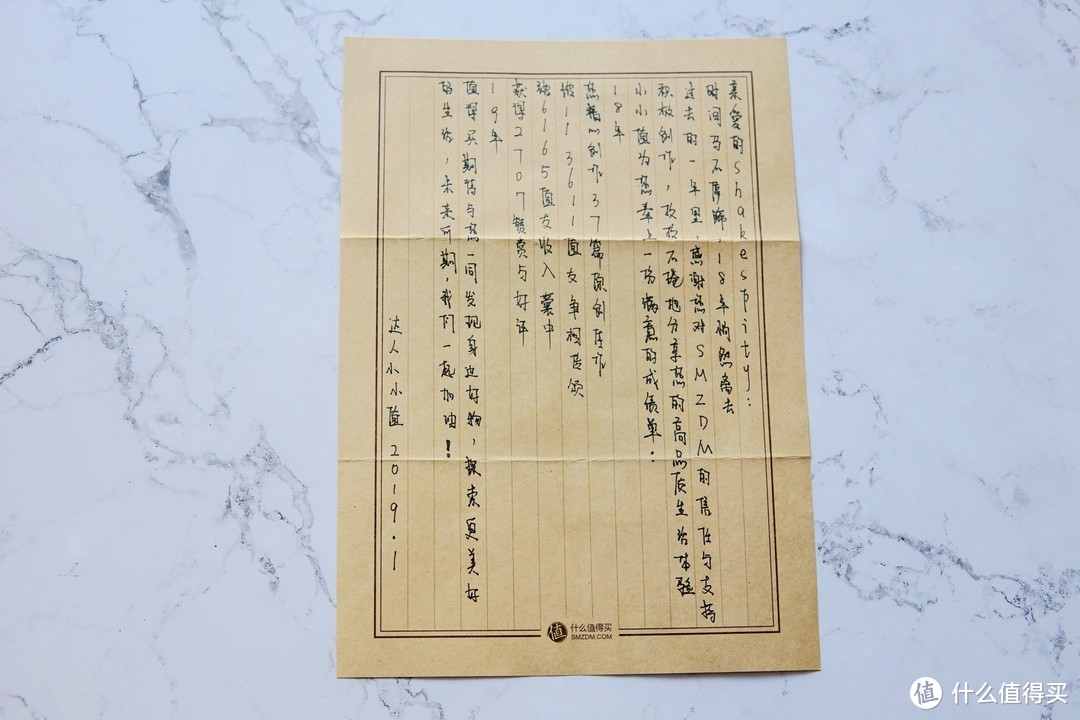 亲爱的shakespity:
时间马不停蹄,18年悄然离去
过去的一年里,感谢您对SMZDM的信任与支持
积极创作,孜孜不倦地分享您的高品质生活体验
小小值为您奉上一份满意的成绩单:
18年
您精心创作37篇原创佳作
被113611值友争相传颂
被6165值友收入囊中
获得2707赞赏与好评
19年
值得买期待与您一同发现身边好物,探索更美好
的生活,未来可期,我们一起加油!
达人小小值2019.1
值
什么值得买
SMZDM.COM
值 什么值得买